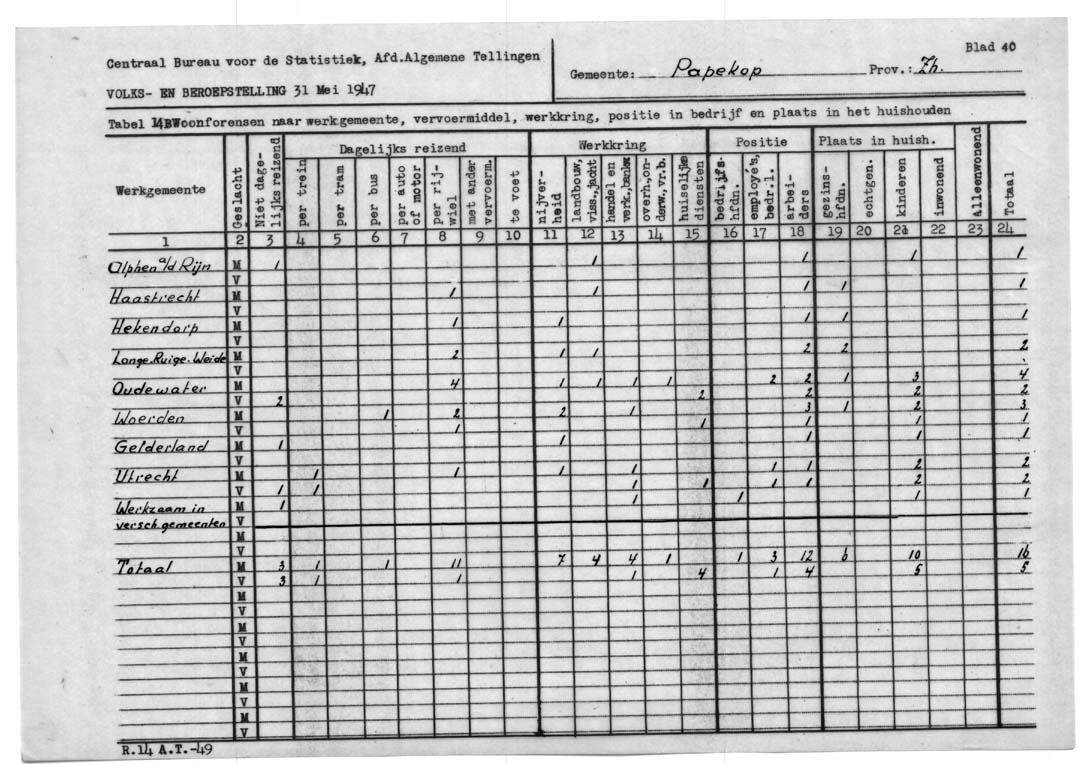 Centraal Bureau voor de Statistiek, Afd.Algemene Tellingen
VOLKS- EN BEROEPSTELLING 31 Mei 1947
Gemeente: Papekop Prov.: Zh.
Blad 40
Tabel 14BWoonforensen naar werkgemeente, vervoermiddel, werkkring, positie in bedrijf en plaats in het huishouden
Werkgemeente Geslacht Niet dage-lijks reizend Dagelijks reizend Werkkring Positie Plaats in huish. Alleenwonend Totaal
per trein per tram per bus per auto of motor per rij-wiel met ander vervoerm. te voet nijver-heid landbouw, viss.,jacht handel en verk.,bankw. overh.on-derw.,vr.b. huiselijke diensten bedrijfs-hfdn. employe's, bedr.l. arbei-ders gezins-hfdn. echtgen. kinderen inwonend
1 2 3 4 5 6 7 8 9 10 11 12 13 14 15 16 17 18 19 20 21 22 23 24
Alphen a/d Rijn M 1 1 1 1 1
V
Haastrecht M 1 1 1 1 1
V
Hekendorp M 1 1 1 1 1
V
Lange.Ruige.Weide M 2 1 1 2 2 2
V
Oudewater M 4 1 1 1 1 2 2 1 3 4
V 2 2 2 2 2
Woerden M 1 2 2 1 3 1 2 3
V 1 1 1 1 1
Gelderland M 1 1 1 1 1
V
Utrecht M 1 1 1 1 1 1 2 2
V 1 1 1 1 1 1 2 2
Werkzaam in M 1 1 1 1 1
versch.gemeenten V
M
V
Totaal M 3 1 1 11 7 4 4 1 1 3 12 6 10 16
V 3 1 1 1 4 1 4 5 5
M
V
M
V
M
V
M
V
M
V
R.14 A.T.-49